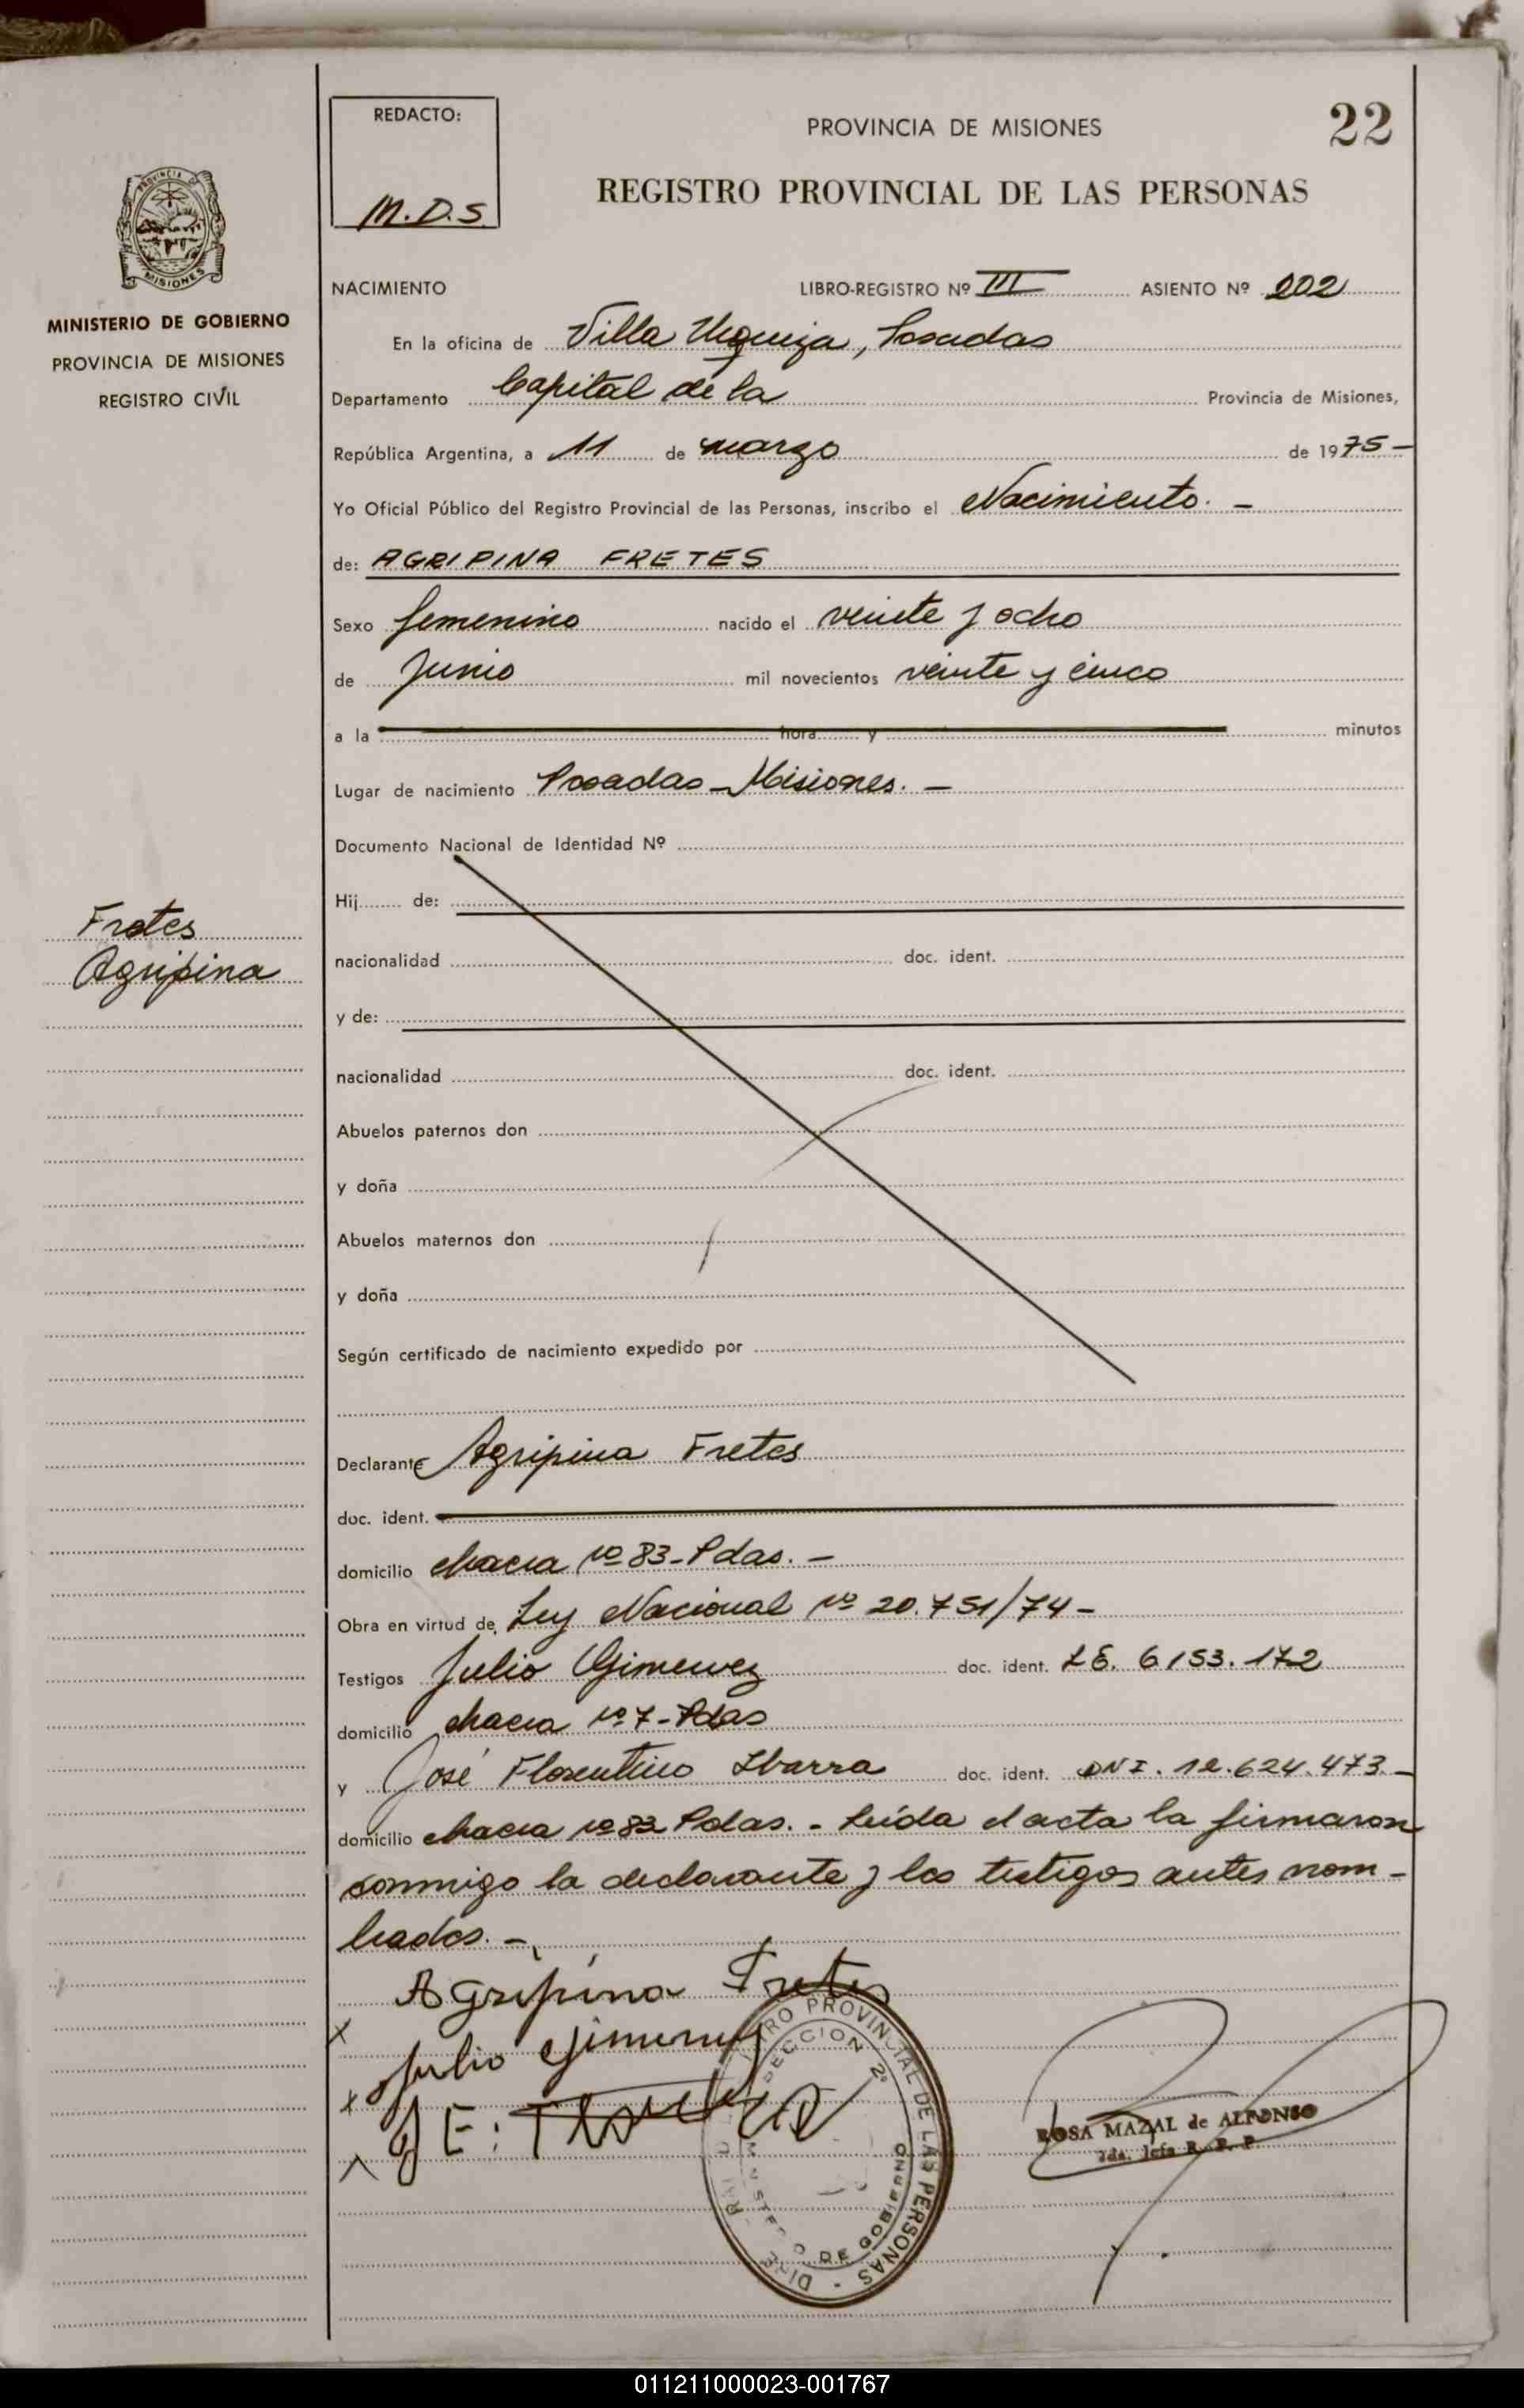 REDACTO:
M.D.S.
PROVINCIA DE MISIONES
22
REGISTRO PROVINCIAL DE LAS PERSONAS
PROVINCIA DE
MISIONES
MINISTERIO DE GOBIERNO
PROVINCIA DE MISIONES
REGISTRO CIVIL
NACIMIENTO LIBRO-REGISTRO Nº III ASIENTO Nº 202
En la oficina de Villa Urquiza, Posadas
Departamento Capital de la Provincia de Misiones,
República Argentina, a 11 de marzo de 1975-
Yo Oficial Público del Registro Provincial de las Personas, inscribo el Nacimiento. -
de: AGRIPINA FRETES
Sexo femenino nacido el veinte y ocho
de Junio mil novecientos veinte y cinco
a la hora y minutos
Lugar de nacimiento Posadas - Misiones. -
Documento Nacional de Identidad Nº
Hij de:
Fretes
Agripina
nacionalidad doc. ident.
y de:
nacionalidad doc. ident.
Abuelos paternos don
y doña
Abuelos maternos don
y doña
Según certificado de nacimiento expedido por
Declarante Agripina Fretes
doc. ident.
domicilio chacra nº 83-Pdas. -
Obra en virtud de Ley Nacional nº 20.751/74 -
Testigos Julio Gimenez doc. ident. LE. 6153.172
domicilio chacra nº 7-Pdas
y José Florentino Ibarra doc. ident. DNI. 12.624.473.-
domicilio chacra nº 82 Pdas. - Leída el acta la firmaron
conmigo la declarante y los testigos antes nom-
brados. -
Agripina Fretes
x Julio Gimenez
x
REGISTRO PROVINCIAL DE LAS PERSONAS
MINISTERIO DE GOBIERNO
ROSA MAZAL de ALFONSO
2da. Jefa R. P. P.
011211000023-001767